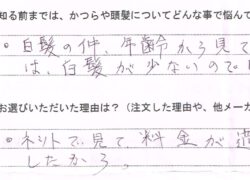 知る前までは、かつらや頭髪についてどんな事で悩んで
・白髪の件、年齢から見て
は、白髪が少ないので
お選びいただいた理由は？（注文した理由や、他メーカ
・ネットで見て、料金が
したから。